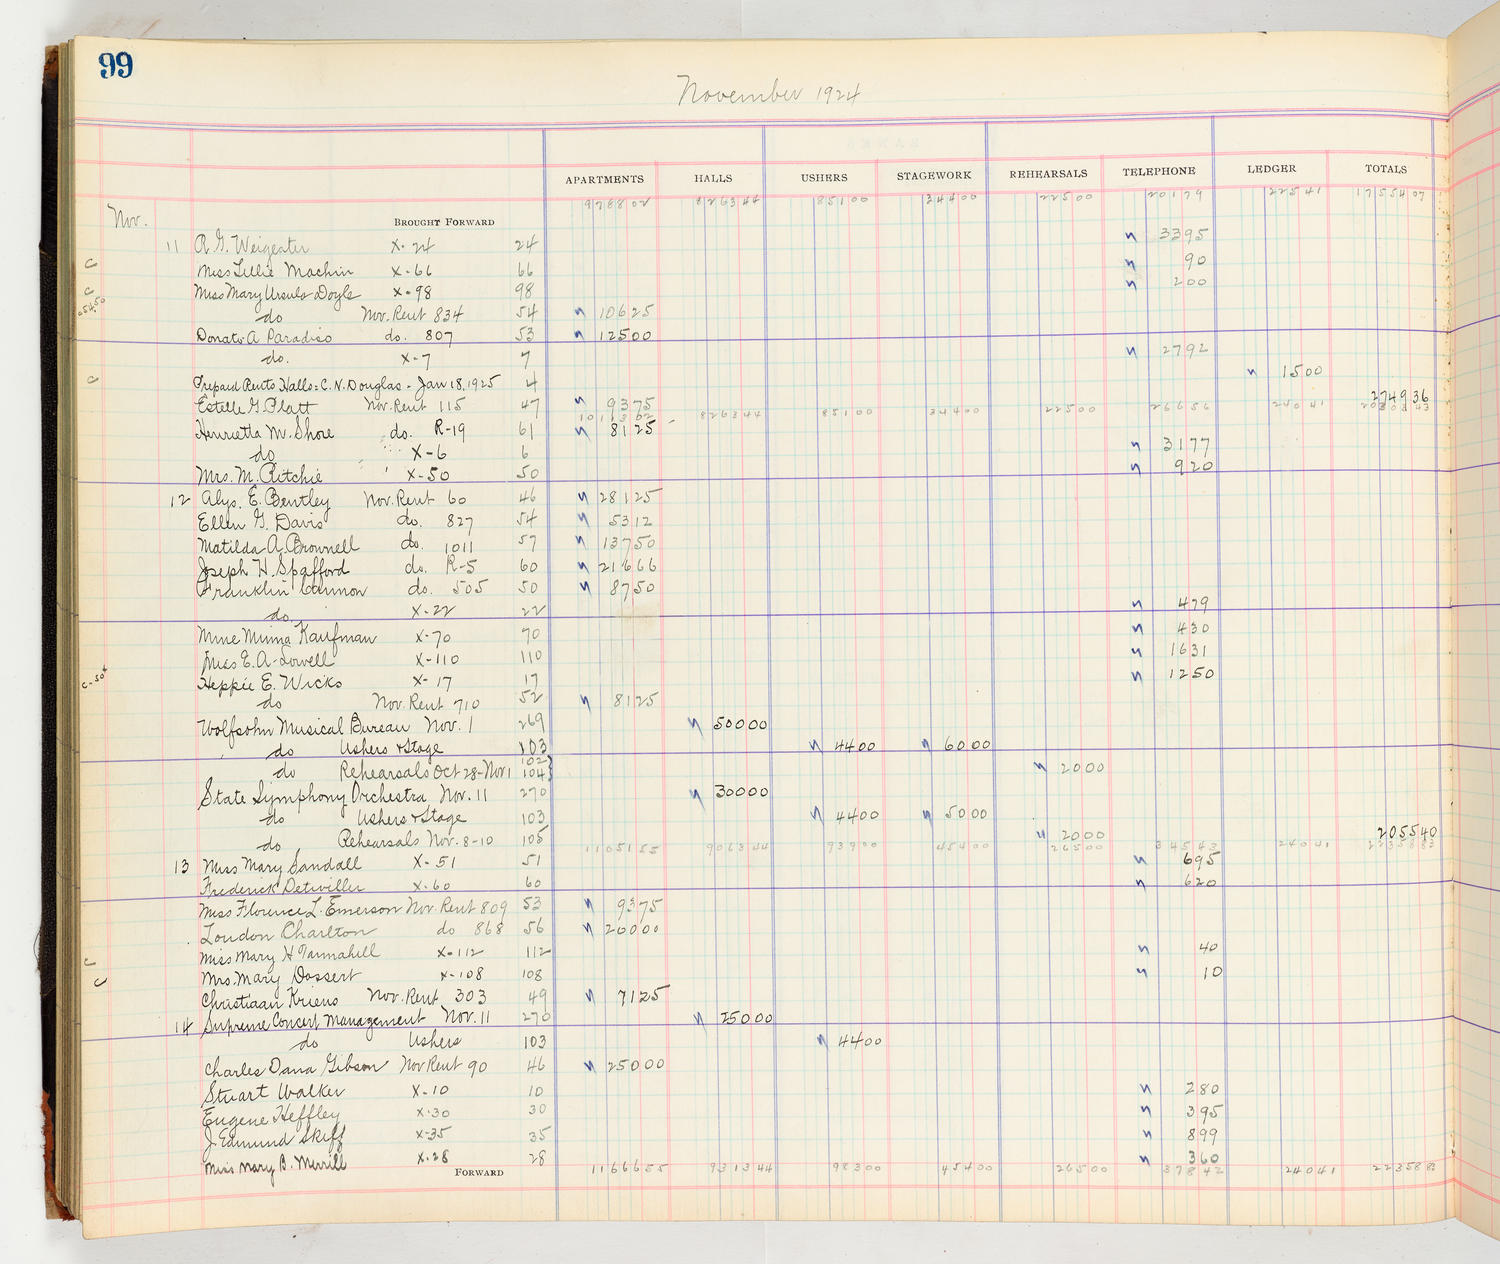 99
November 1924
APARTMENTS HALLS USHERS STAGEWORK REHEARSALS TELEPHONE LEDGER TOTALS
Nov. BROUGHT FORWARD 9768 02 8263 44 851 00 344 00 225 00 201 79 225 41 17554 07
11 R. G. Weigester X-24 24 33 95
C Miss Lillie Machin X-66 66 90
C Miss Mary Ursula Doyle X-98 98 2 00
do Nov. Rent 834 54 106 25
Donato A Paradiso do. 807 53 125 00
do. X-7 7 27 92
C Prepaid Rents Halls = C. N. Douglas - Jan 18, 1925 4 15 00
Estelle G. Platt Nov. Rent 115 47 93 75 2749 36
8263 44 851 00 344 00 225 00 266 56 240 41
Henrietta M. Shore do. R-19 61 81 25
do X-6 6 31 77
Mrs. M. Ritchie X-50 50 9 20
12 Alys. E. Bentley Nov. Rent 60 46 281 25
Ellen G. Davis do. 827 54 53 12
Matilda A. Brownell do. 1011 57 137 50
Joseph H. Spafford do. R-5 60 216 66
Franklin Cannon do. 505 50 87 50
do. X-22 22 4 79
Mme Minna Kaufman X-70 70 4 30
Miss E. A. Lowell X-110 110 16 31
Heppie E. Wicks X-17 17 12 50
do Nov. Rent 710 52 81 25
Wolfsohn Musical Bureau Nov. 1 269 500 00
do Ushers & Stage 103 44 00 60 00
do Rehearsals Oct 28-Nov 1 102 104 20 00
State Symphony Orchestra Nov. 11 270 300 00
do Ushers & Stage 103 44 00 50 00
do Rehearsals Nov. 8-10 105 20 00 2055 40
11051 55 9063 44 939 00 454 00 265 00 345 43 240 41
13 Miss Mary Sandall X-51 51 6 95
Frederick Detwiller X-60 60 6 20
Miss Florence L. Emerson Nov. Rent 809 53 93 75
Loudon Charlton do 868 56 200 00
C Miss Mary H Tannahill X-112 112 40
C Mrs. Mary Dassert X-108 108 10
Christiaan Kriens Nov. Rent 303 49 71 25
14 Supreme Concert Management Nov. 11 270 250 00
do Ushers 103 44 00
Charles Dana Gibson Nov Rent 90 46 250 00
Stuart Walker X-10 10 2 80
Eugene Heffley X-30 30 3 95
J Edmund Skiff X-35 35 8 99
Miss Mary B. Merrill X-28 28 3 60
FORWARD 11666 55 9313 44 983 00 454 00 265 00 378 42 240 41 22358 83